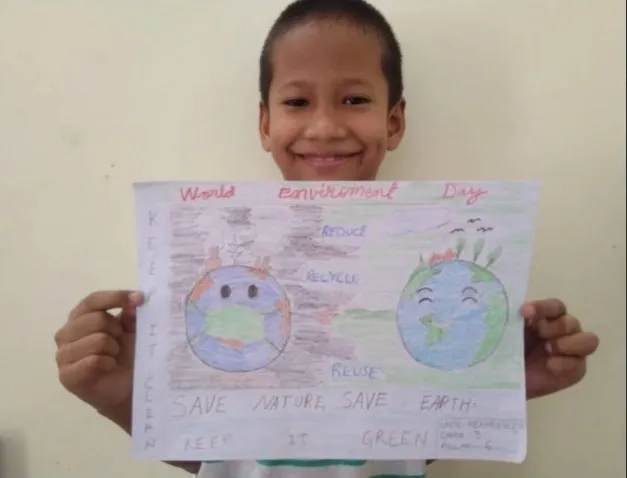 World Enviroment Day
KEEP IT CLEAN
REDUCE
RECYCLE
REUSE
SAVE NATURE, SAVE EARTH.
KEEP IT GREEN